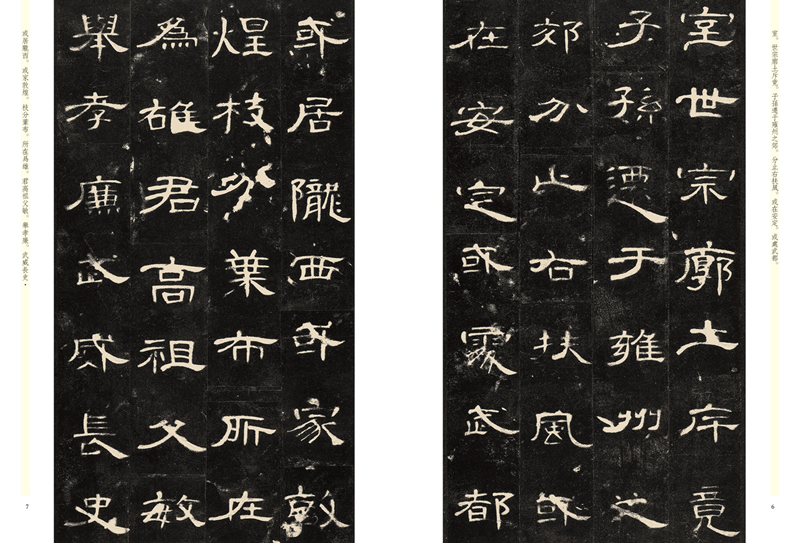 室。世宗廓土斥竟。子孫遷于雍州之郊。分止右扶風。或在安定。或處武都。
室世宗廓土斥竟
子孫遷于雍州之
郊分止右扶風或
在安定或處武都
6
或居隴西或家敦
煌枝分葉布所在
為雄君高祖父敏
舉孝廉武威長史
或居隴西。或家敦煌。枝分葉布。所在爲雄。君高祖父敏。舉孝廉。武威長史・
7